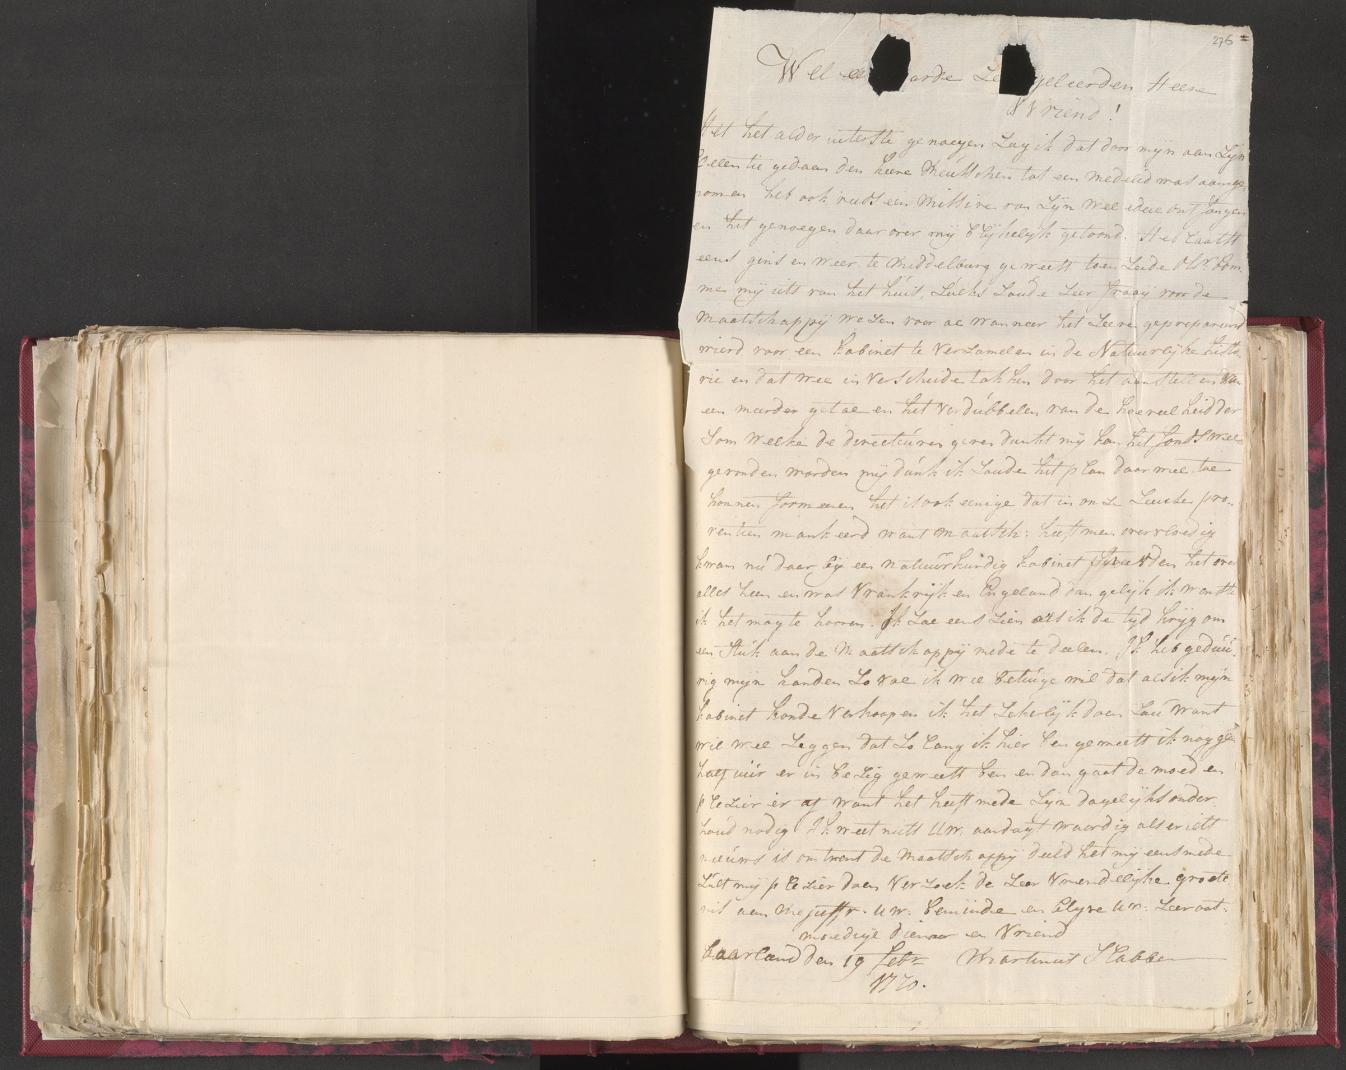 276
Wel ee arde Ze geleerden Heere
Vriend!
Met het alder uiterste genoegen Zag ik dat door mijn aan Zijn
gedaan den heere Meutschen tot een medelid was aange
nomen heb ook reeds een Missive van Zijn Wel edele ontfangen
en het genoegen daar over mij blijkelijk getoond. Het laatst
eens gins en weer te Middelburg geweest toen Zeide Mr Bom
me mij uits van het huis, Zulks Zoude Zeer fraaij voor de
Maatschappij weZen voor al wanneer het Zeere geprepareerd
wierd voor een kabinet te VerZamelen in de Natuurlijke histo
rie en dat wel in Verscheide takken door het aanstellen van
een meerder getal en het Verdubbelen van de hoeveelheid der
Som welke de directeuren geven dunkt mij kan het fonds wel
gevonden worden mij dunk ik Zoude het plan daar wel toe
konnen formeeren het is ook eenige dat in onZe Zeeuse pro-
ventien mankeerd want maatsch: heeft men overvloedig
kwam nu daar bij een natuurkundig kabinet het over
alles heen en was Vrankrijk en Engeland dan gelijk ik wenste
ik het mag te hooren. Ik Zal eens Zien als ik de tyd krijg om
een Stuk aan de Maatschappij mede te deelen. Ik heb geduu-
rig mijn handen Zo vol ik wil betuige wel dat als ik mijn
kabinet konde Verkoopen ik het Zekerlijk doen Zou want
wil wel Zeggen dat Zo lang ik hier ben geweest ik nog ge
half uur er in beZig geweest ben en dan gaat de moed en
pleZier er af want het heeft mede Zijn dagelijks onder
houd nodig Ik weet niets Uw. aandagt waardig als er iets
nieuws is omtrent de Maatschappij deeld het mij eens mede
Zult mij pleZier doen VerZoek de Zeer Vriendelijke groete
nis aan Mejuffr. Uw. beminde en blyve Uw. Zeer oot-
moedige dienaar en Vriend
baarland den 19 febr Martinus Slabber
1770.